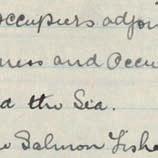 occupiers adjoi
ness and Occu
d the Sea.
Salmon Fishe